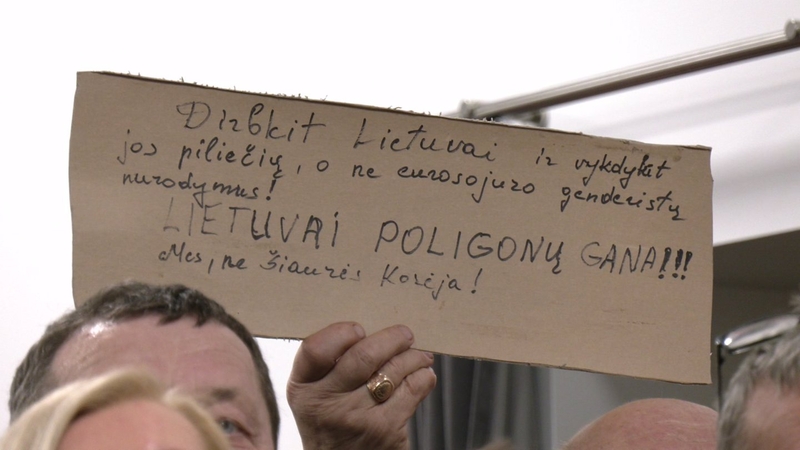 Dirbkit Lietuvai ir vykdykit
jos piliečių, o ne eurosojuzo genderistų
nurodymus!
LIETUVAI POLIGONŲ GANA!!!
Mes, ne Šiaurės Korėja!